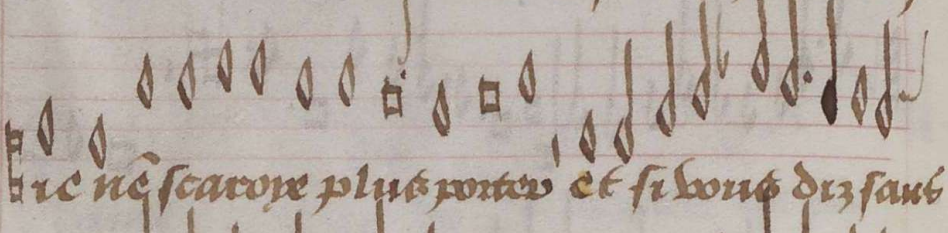 ie ne scaroye plus porter et si vous diz sans